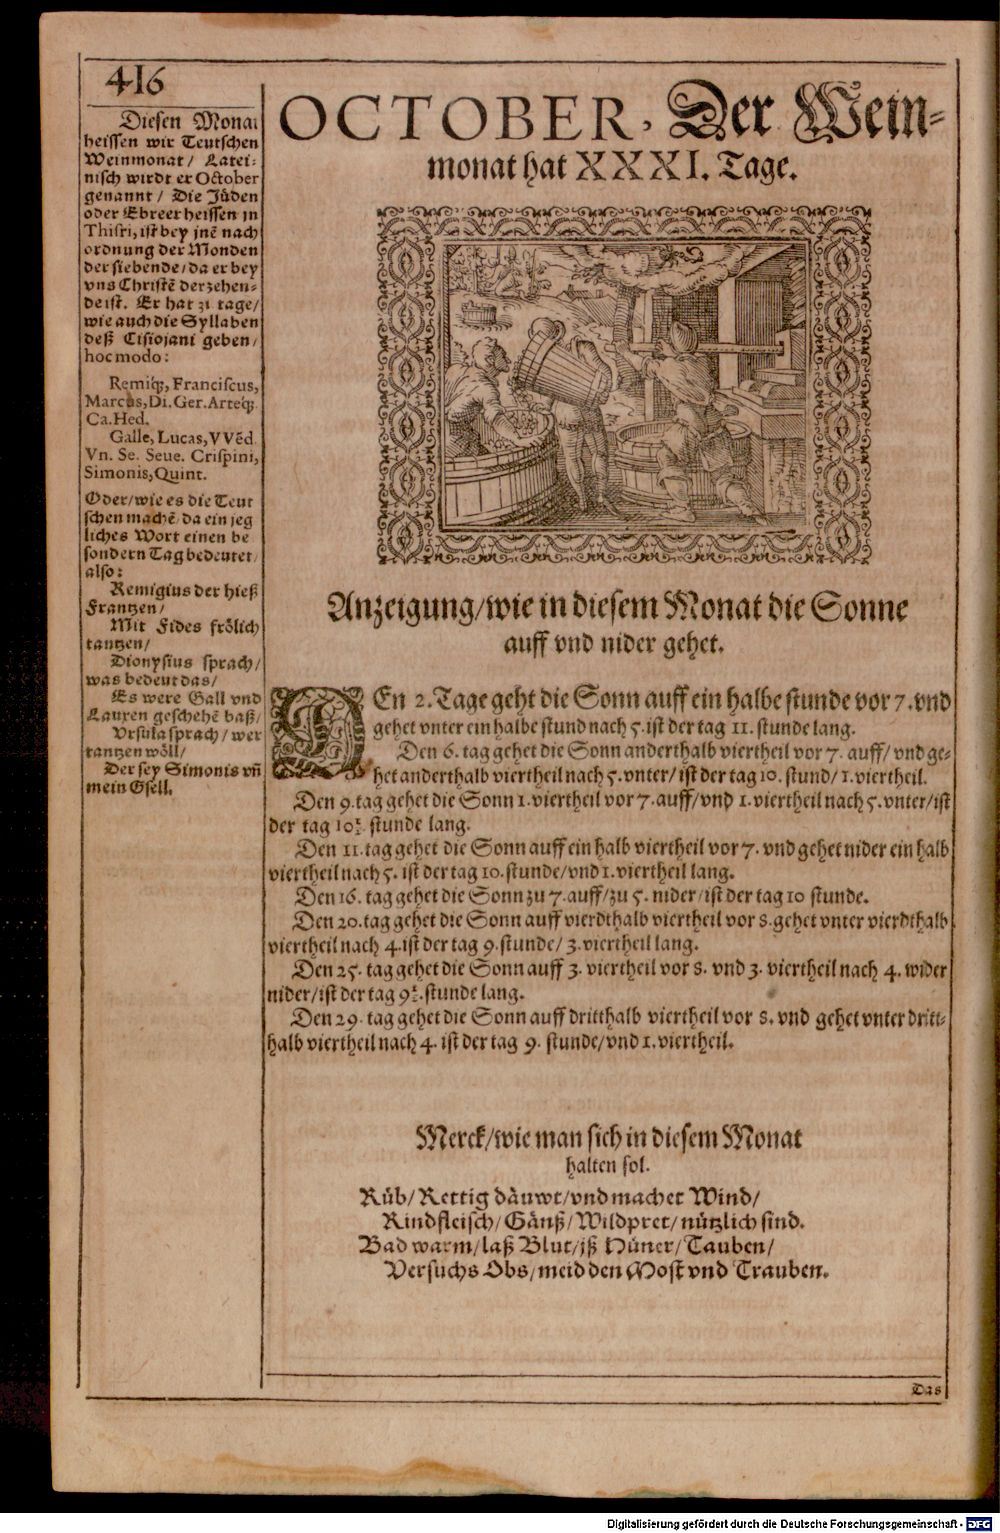 416
Diesen Monat
heissen wir Teutschen
Weinmonat/ Latei-
nisch wirdt er October
genannt/ Die Jüden
oder Ebreer heissen jn
Thisri, ist bey jnē nach
ordnung der Monden
der siebende/ da er bey
vns Christē der zehen-
de ist. Er hat 31 tage/
wie auch die Syllaben
deß Cisiojani geben/
hoc modo:
Remiq;, Franciscus,
Marcus, Di. Ger. Arteq;
Ca. Hed.
Galle, Lucas, VVēd
Vn. Se. Seue. Crispini,
Simonis, Quint.
Oder/ wie es die Teut
schen machē/ da ein jeg
liches Wort einen be
sondern Tag bedeutet/
also:
Remigius der hieß
Frantzen/
Mit Fides frölich
tantzen/
Dionysius sprach/
was bedeut das/
Es were Gall vnd
Lauxen geschehē baß/
Vrsula sprach/ wer
tantzen wöll/
Der sey Simonis vn̄
mein Gsell.
OCTOBER, Der Wein-
monat hat XXXI. Tage.
Anzeigung/ wie in diesem Monat die Sonne
auff vnd nider gehet.
DEn 2. Tage geht die Sonn auff ein halbe stunde vor 7. vnd
gehet vnter ein halbe stund nach 5. ist der tag 11. stunde lang.
Den 6. tag gehet die Sonn anderthalb viertheil vor 7. auff/ vnd ge-
het anderthalb viertheil nach 5. vnter/ ist der tag 10. stund/ 1. viertheil.
Den 9. tag gehet die Sonn 1. viertheil vor 7. auff/ vnd 1. viertheil nach 5. vnter/ ist
der tag 10½. stunde lang.
Den 11. tag gehet die Sonn auff ein halb viertheil vor 7. vnd gehet nider ein halb
viertheil nach 5. ist der tag 10. stunde/ vnd 1. viertheil lang.
Den 16. tag gehet die Sonn zu 7. auff/ zu 5. nider/ ist der tag 10 stunde.
Den 20. tag gehet die Sonn auff vierdthalb viertheil vor 8. gehet vnter vierdthalb
viertheil nach 4. ist der tag 9. stunde/ 3. viertheil lang.
Den 25. tag gehet die Sonn auff 3. viertheil vor 8. vnd 3. viertheil nach 4. wider
nider/ ist der tag 9½. stunde lang.
Den 29. tag gehet die Sonn auff dritthalb viertheil vor 8. vnd gehet vnter dritt-
halb viertheil nach 4. ist der tag 9. stunde/ vnd 1. viertheil.
Merck/ wie man sich in diesem Monat
halten sol.
Rüb/ Rettig däuwt/ vnd machet Wind/
Rindfleisch/ Gänß/ Wildpret/ nützlich sind.
Bad warm/ laß Blut/ jß Hüner/ Tauben/
Versuchs Obs/ meid den Most vnd Trauben.
Das
Digitalisierung gefördert durch die Deutsche Forschungsgemeinschaft - DFG